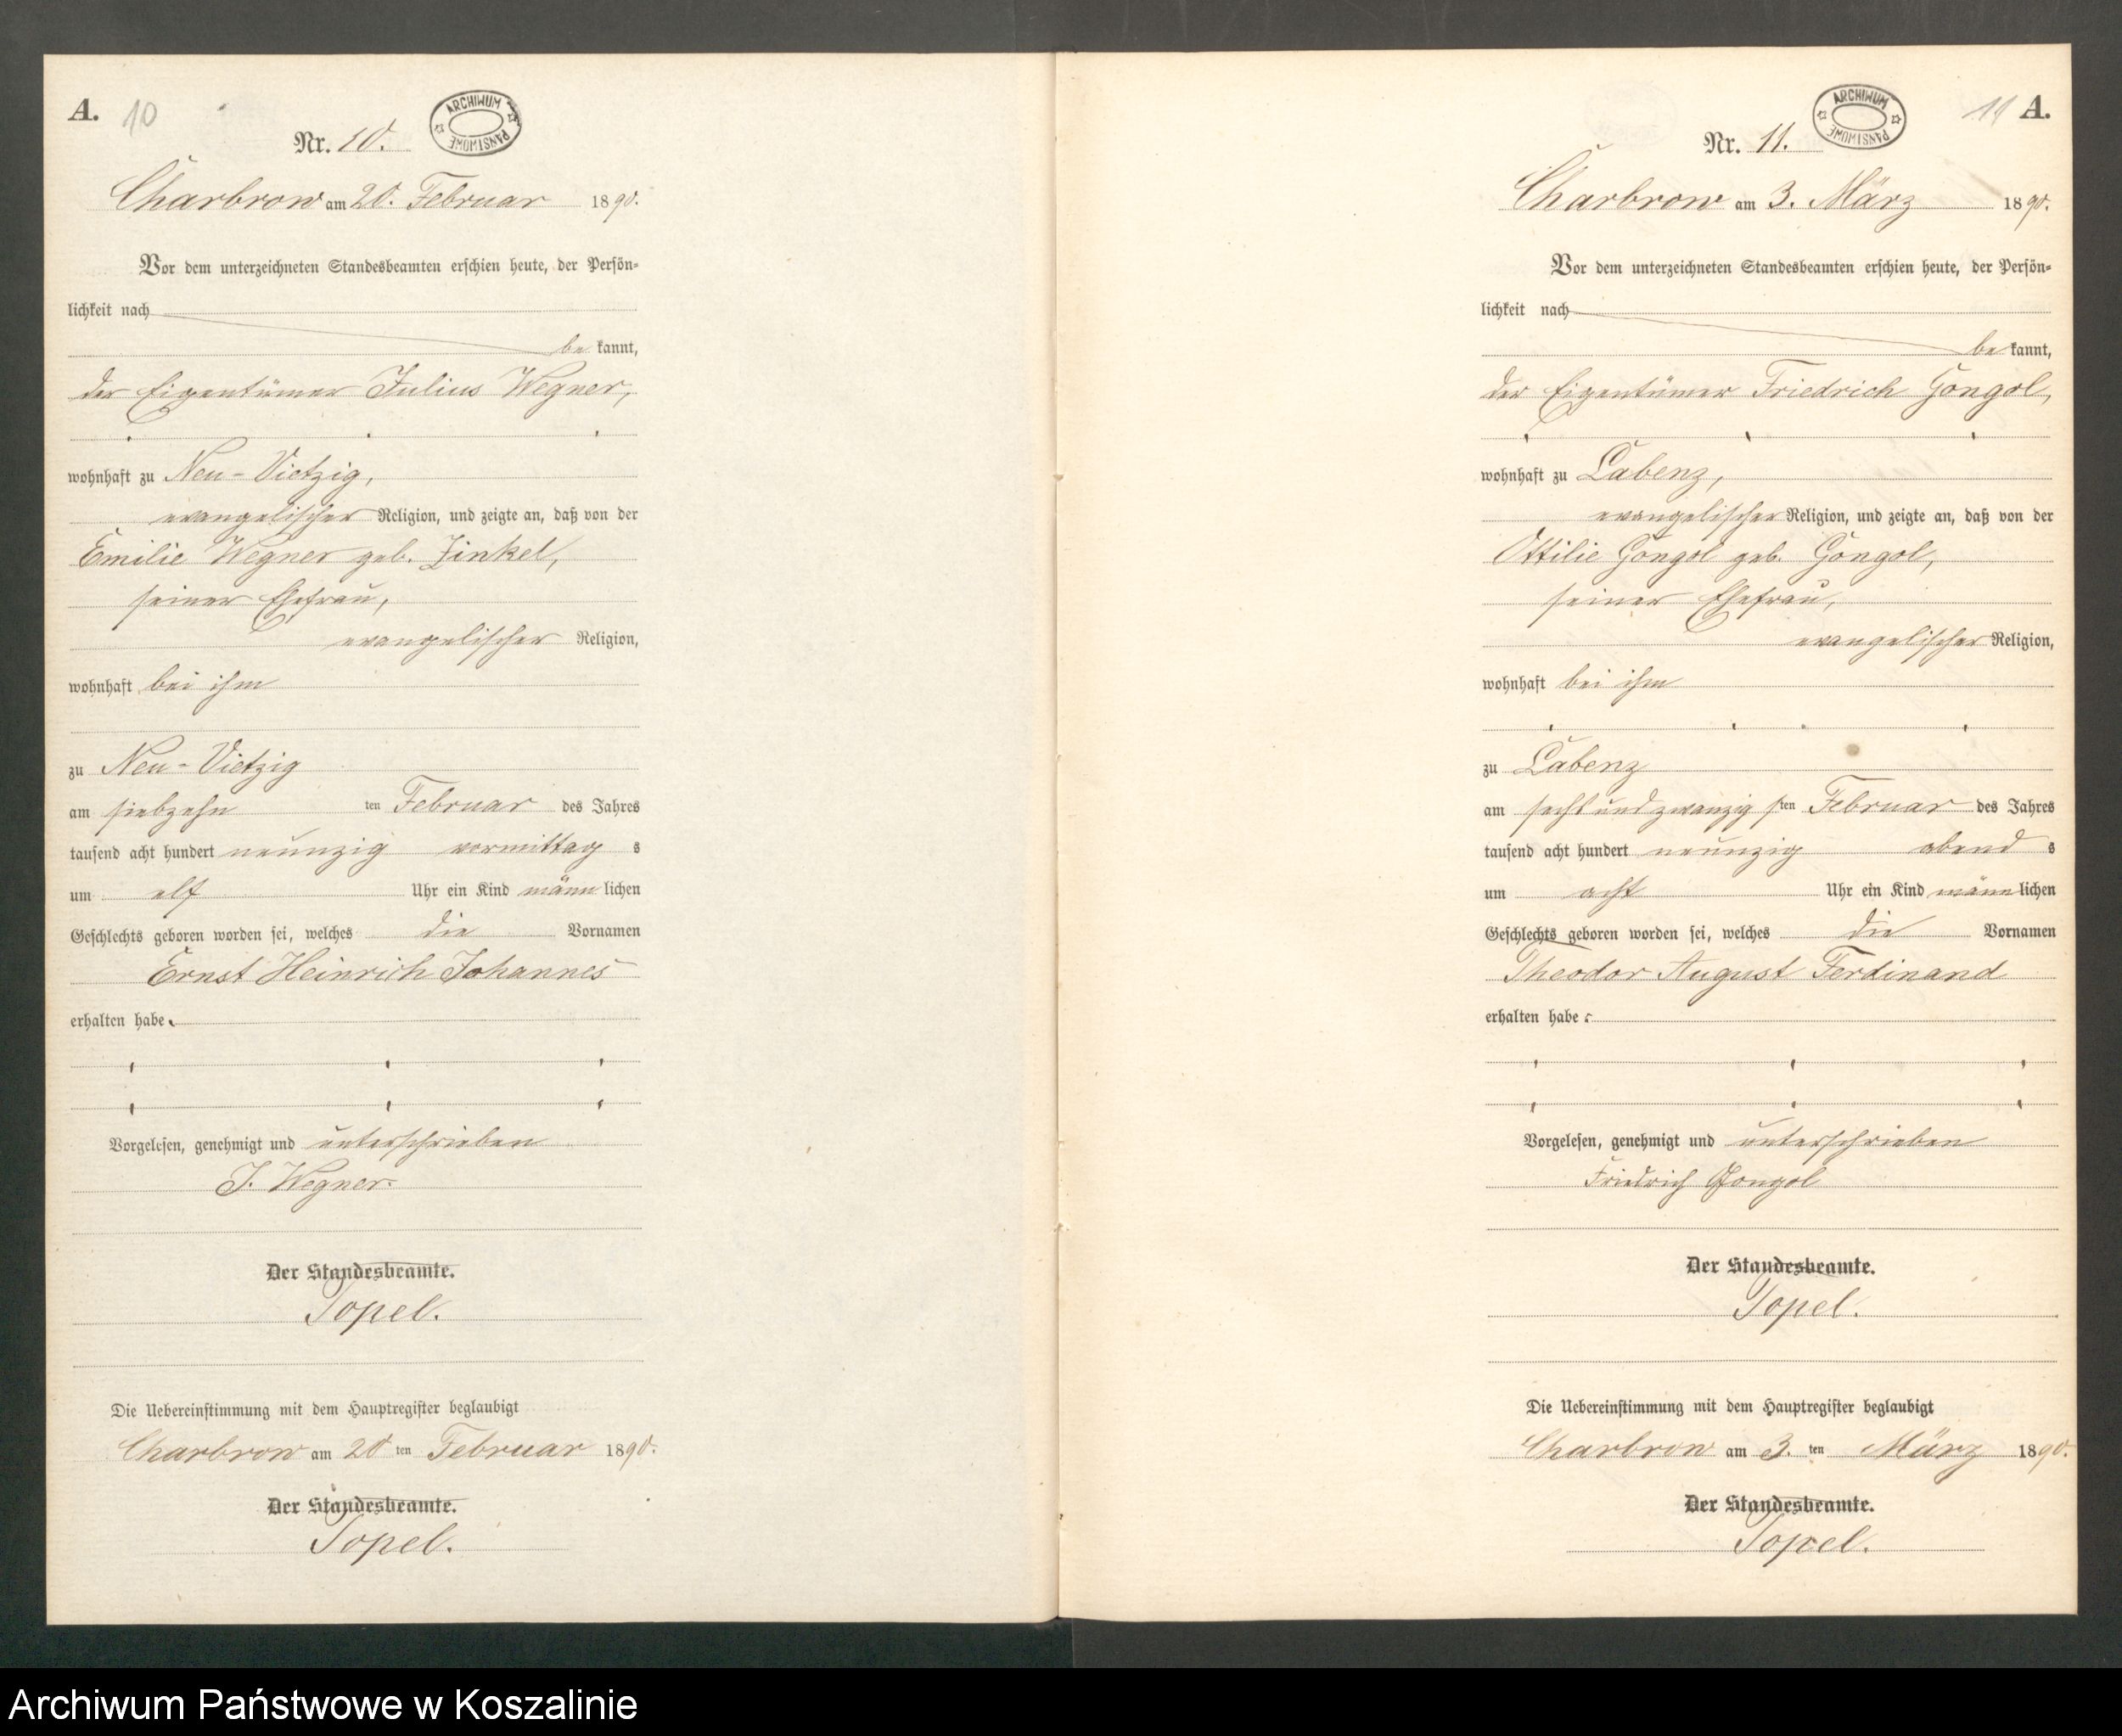 A. 10
Nr. 10.
ARCHIWUM PAŃSTWOWE
Charbrow am 20. Februar 1890.
Vor dem unterzeichneten Standesbeamten erschien heute, der Persön-
lichkeit nach
be kannt,
der Eigentümer Julius Wegner,
wohnhaft zu Neu-Vietzig,
evangelischer Religion, und zeigte an, daß von der
Emilie Wegner geb. Zinkel,
seiner Ehefrau,
evangelischer Religion,
wohnhaft bei ihm
zu Neu-Vietzig
am siebzehn ten Februar des Jahres
tausend acht hundert neunzig vormittag s
um elf Uhr ein Kind männ lichen
Geschlechts geboren worden sei, welches die Vornamen
Ernst Heinrich Johannes
erhalten habe.
Vorgelesen, genehmigt und unterschrieben
J. Wegner.
Der Standesbeamte.
Topel.
Die Uebereinstimmung mit dem Hauptregister beglaubigt
Charbrow am 20 ten Februar 1890.
Der Standesbeamte.
Topel.
11 A.
Nr. 11.
ARCHIWUM PAŃSTWOWE
Charbrow am 3. März 1890.
Vor dem unterzeichneten Standesbeamten erschien heute, der Persön-
lichkeit nach
be kannt,
der Eigentümer Friedrich Gongol,
wohnhaft zu Labenz,
evangelischer Religion, und zeigte an, daß von der
Ottilie Gongol geb. Gongol,
seiner Ehefrau,
evangelischer Religion,
wohnhaft bei ihm
zu Labenz
am sechsundzwanzig sten Februar des Jahres
tausend acht hundert neunzig abend s
um acht Uhr ein Kind männ lichen
Geschlechts geboren worden sei, welches die Vornamen
Theodor August Ferdinand
erhalten habe.
Vorgelesen, genehmigt und unterschrieben
Friedrich Gongol
Der Standesbeamte.
Topel.
Die Uebereinstimmung mit dem Hauptregister beglaubigt
Charbrow am 3. ten März 1890.
Der Standesbeamte.
Topel.
Archiwum Państwowe w Koszalinie